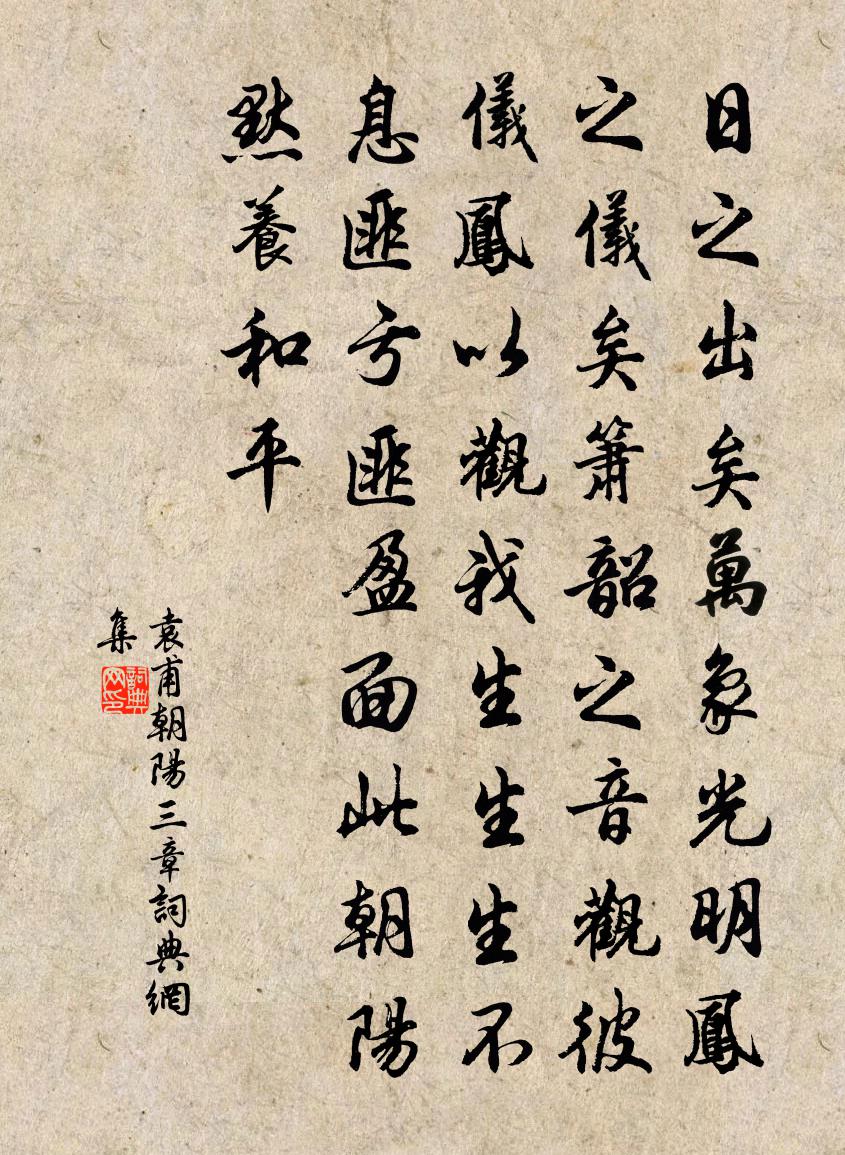 日之出矣萬象光明鳳
之儀矣簫韶之音觀彼
儀鳳以觀我生生生不
息匪亏匪盈面此朝陽
默養和平
袁甫朝陽三章詞典網
集
詞典网印